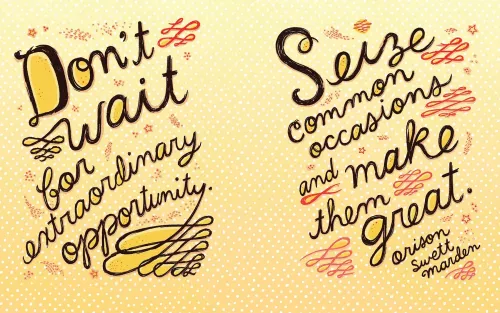 Don't
wait
for
extraordinary
opportunity.
Seize
common
occasions
and make
them
great.
orison
swett
marden